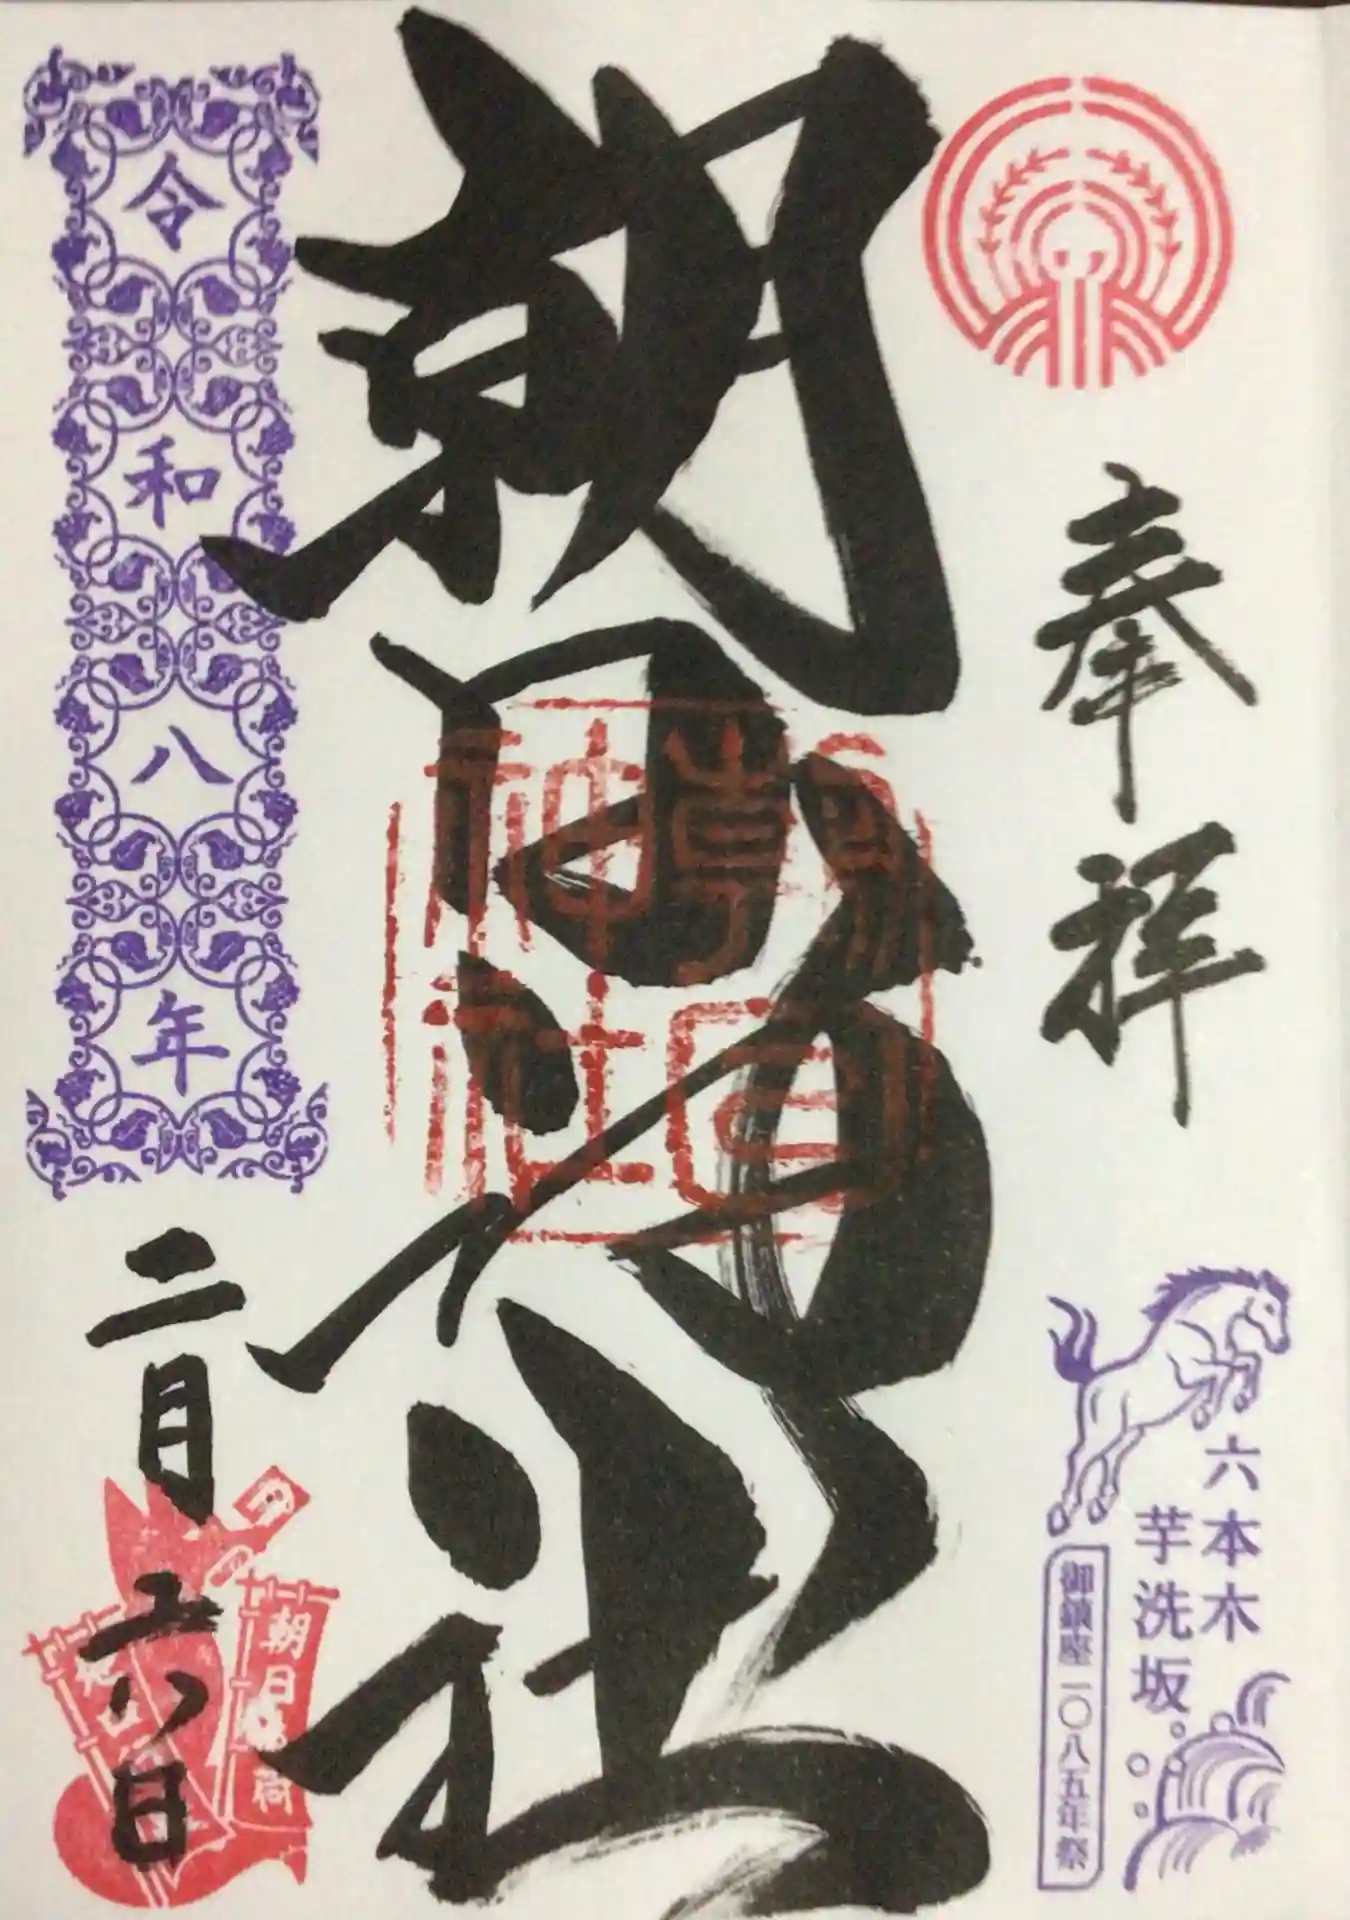 奉拝
六本木
芋洗坂
御鎮座一〇八五年祭
朝日神社
朝日神社
令和八年
二月六日
朝日稲荷